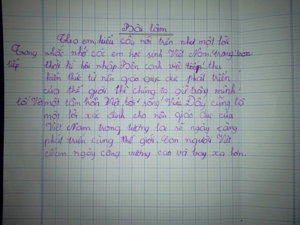 Bài làm
Theo em, hiểu câu nói trên như một lời
nhắc nhở các em học sinh Việt Nam, trong
thời kì hội nhập. Bên cạnh việc tiếp thu
kiến thức từ nền giáo dục phát triển
của thế giới thì chúng ta giữ trong mình
một tâm hồn Việt, lối sống Việt. Đây cũng là
một lời xác định cho nền giáo dục của
Việt Nam trong tương lai sẽ ngày càng
phát triển cùng thế giới. Con người Việt
Nam ngày càng vươn cao và bay xa hơn.